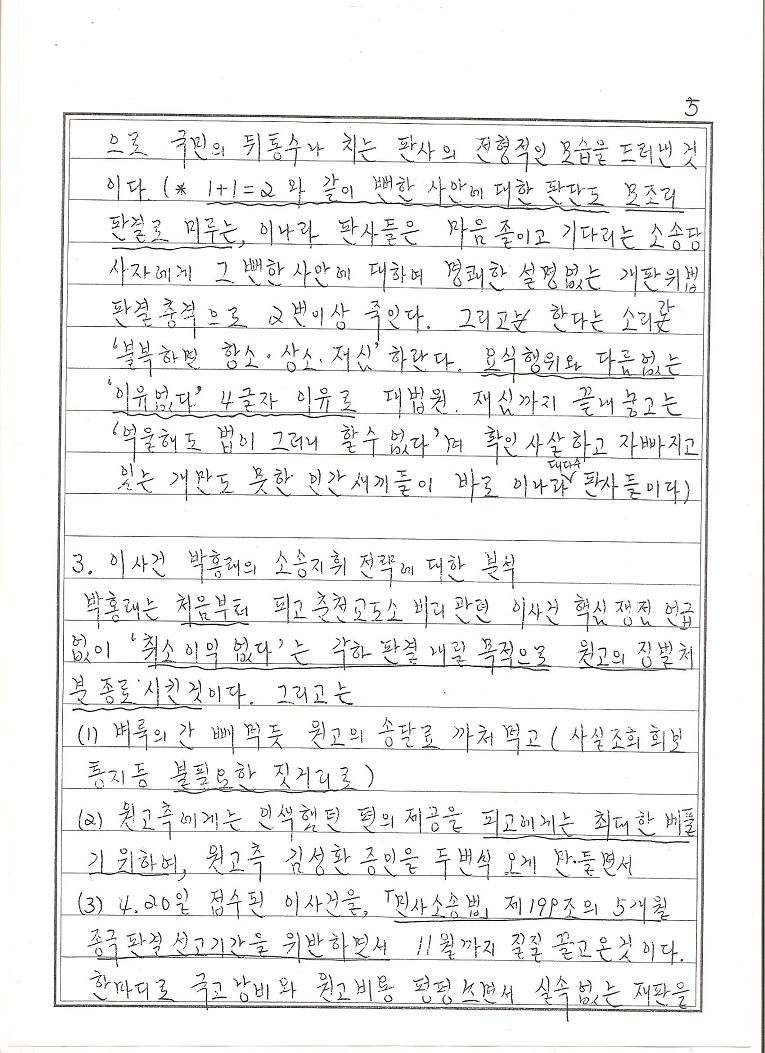 5
으로 국민의 뒤통수나 치는 판사의 전형적인 모습을 드러낸 것
이다. (* 1+1=2 와 같이 뻔한 사안에 대한 판단도 모조리
판결로 미루는, 이나라 판사들은 마음 졸이고 기다리는 소송당
사자에게 그 뻔한 사안에 대하여 명쾌한 설명없는 개판위법
판결충격으로 2번이상 죽인다. 그리고 한다는 소리가
'불복하면 항소·상소·재심' 하란다. 요식행위와 다름없는
'이유없다' 4글자 이유로 대법원. 재심까지 끝내놓고는
'억울해도 법이 그러니 할수 없다'며 확인사살하고 자빠지고
있는 개만도 못한 인간새끼들이 바로 이나라 대다수 판사들이다)
3. 이사건 박홍래의 소송지휘 전략에 대한 분석
박홍래는 처음부터 피고 춘천교도소 비리관련 이사건 핵심쟁점 언급
없이 '취소이익 없다'는 각하 판결 내릴 목적으로 원고의 징벌처
분 종료 시킨 것이다. 그리고는
(1) 벼룩의 간 빼먹듯 원고의 송달료 까쳐먹고 (사실조회 회보
통지등 불필요한 짓거리로)
(2) 원고측에게는 인색했던 편의 제공을 피고에게는 최대한 베풀
기 위하여, 원고측 김성환 증인을 두번씩 오게 만들면서
(3) 4.20일 접수된 이사건을, 「민사소송법」 제199조의 5개월
종국판결선고기간을 위반하면서 11월까지 질질 끌고온것이다.
한마디로 국고낭비와 원고비용 펑펑쓰면서 실속없는 재판을